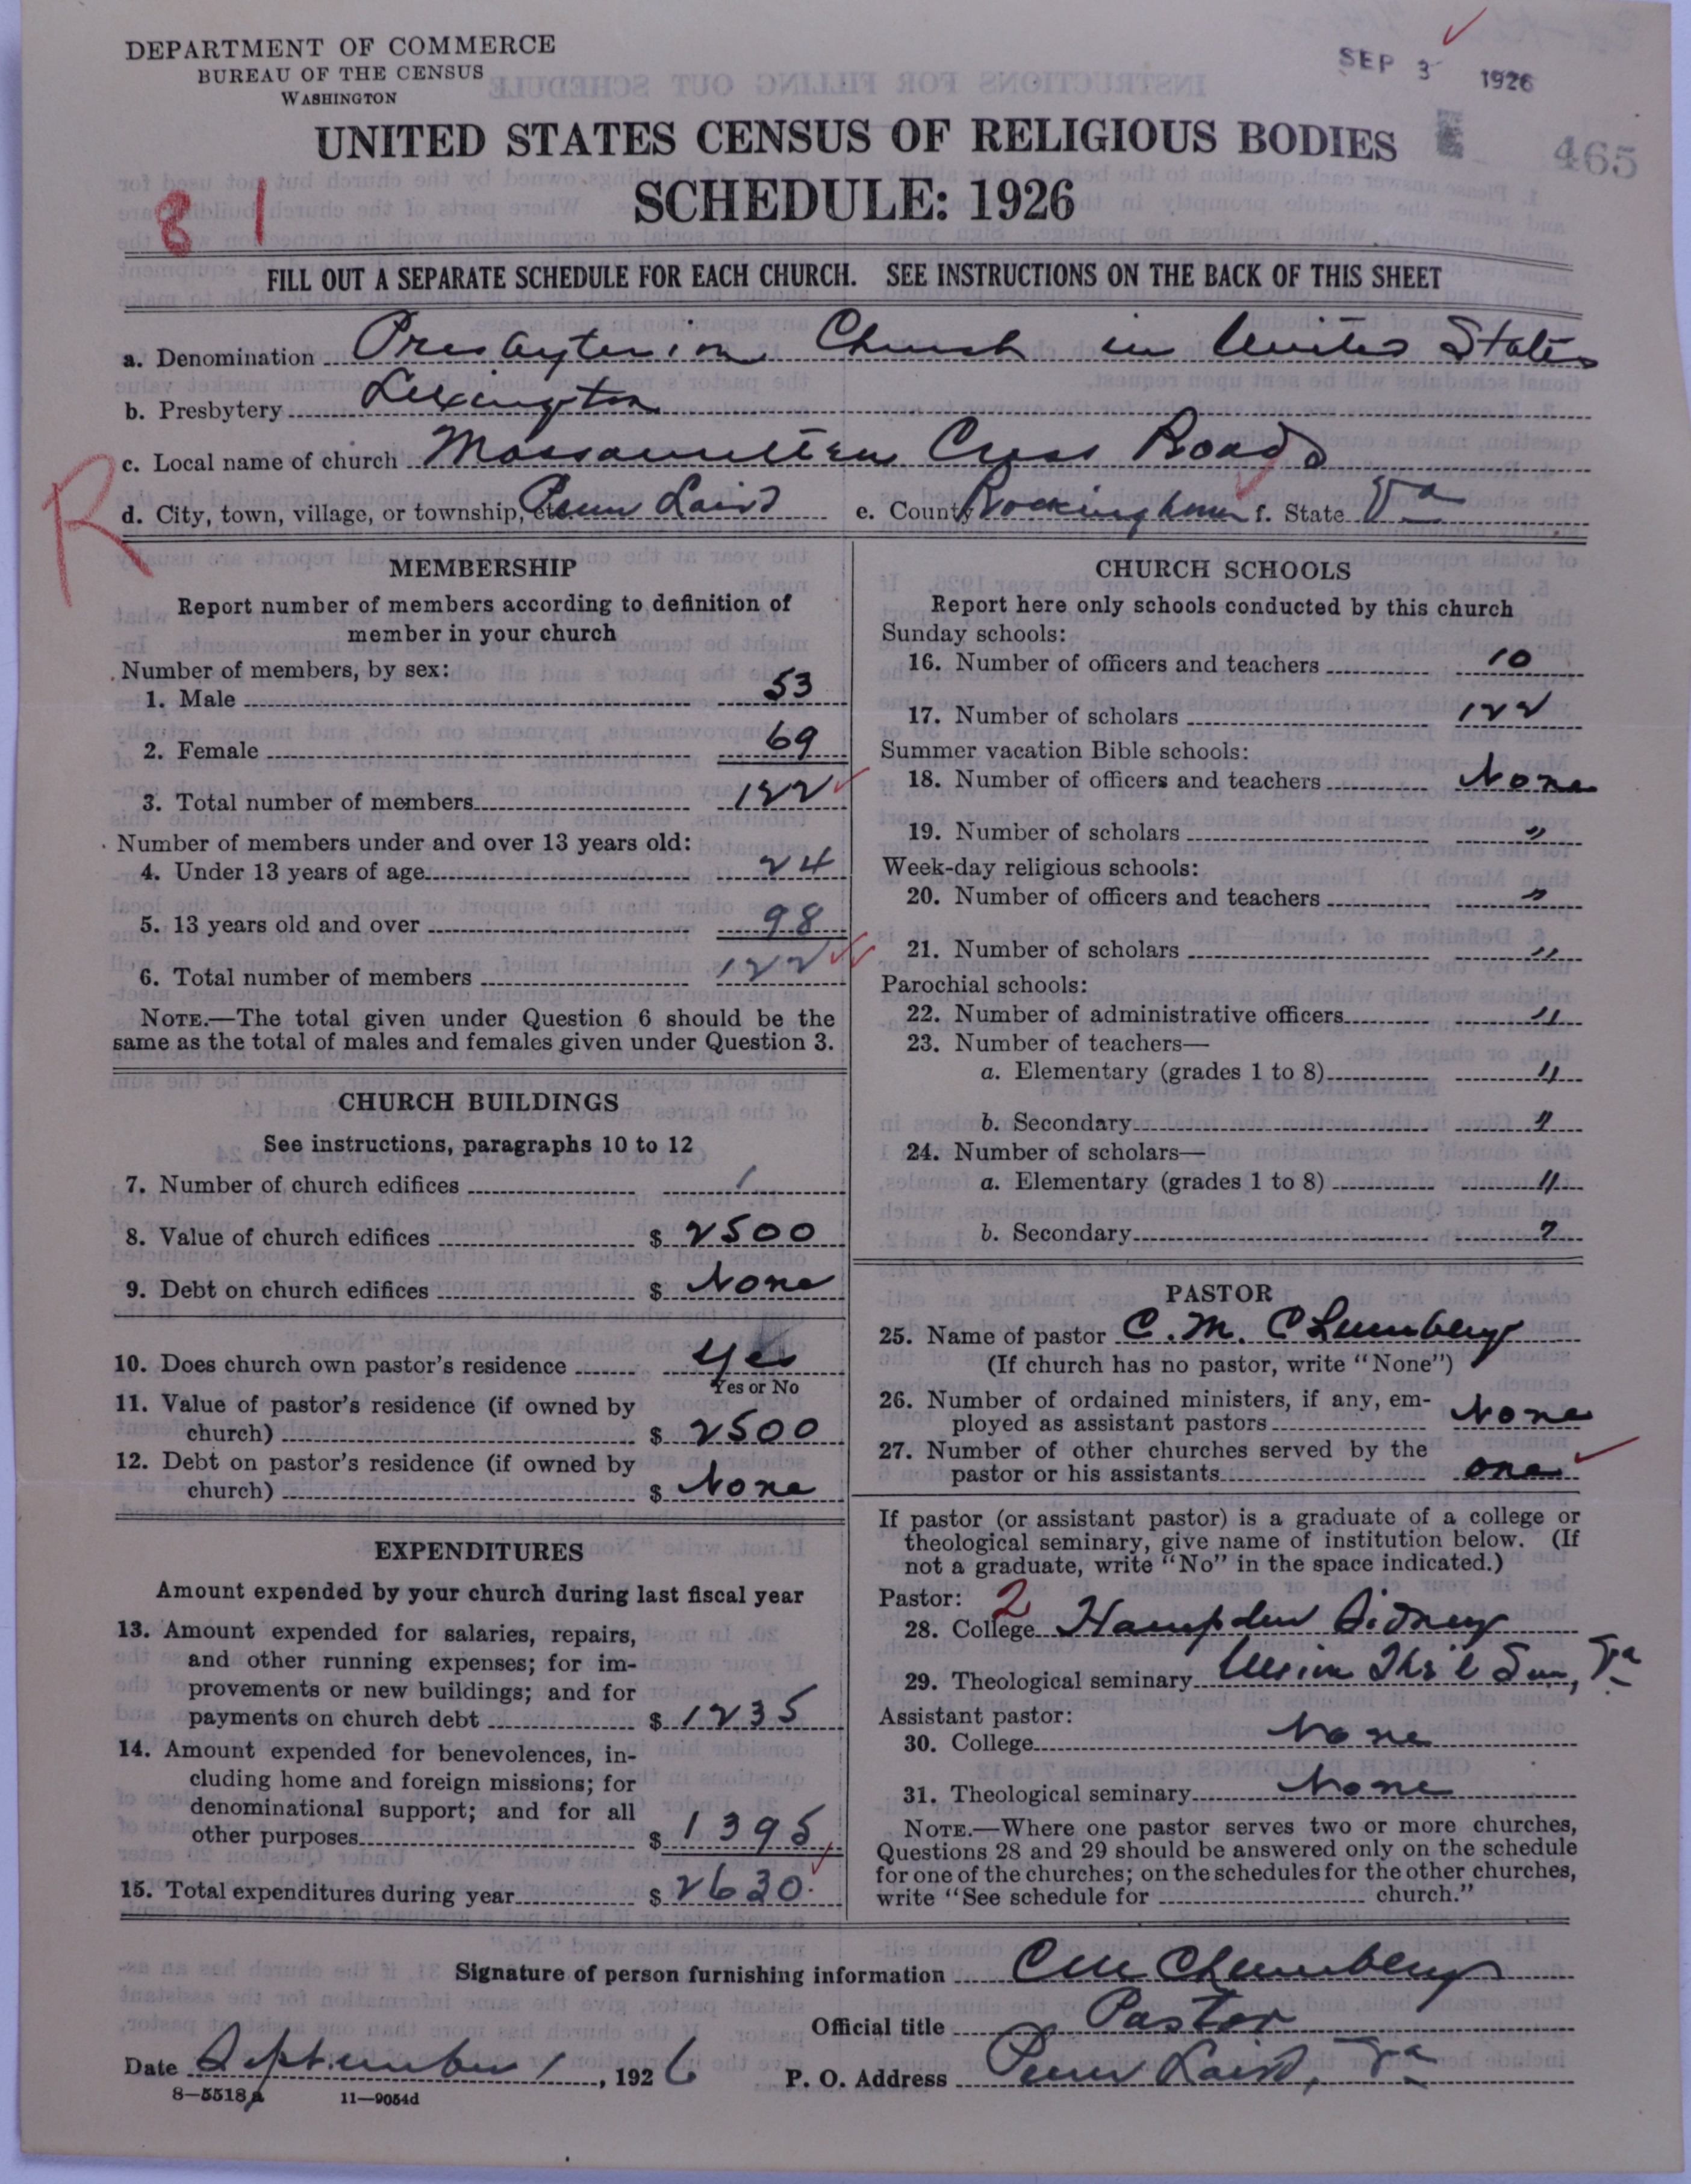 DEPARTMENT OF COMMERCE
BUREAU OF THE CENSUS
WASHINGTON
SEP 3 1926
UNITED STATES CENSUS OF RELIGIOUS BODIES
465
SCHEDULE: 1926
8 1
FILL OUT A SEPARATE SCHEDULE FOR EACH CHURCH. SEE INSTRUCTIONS ON THE BACK OF THIS SHEET
a. Denomination Presbyterian Church in United States
b. Presbytery Lexington
c. Local name of church Massanutten Cross Roads
R
d. City, town, village, or township, etc. Penn Laird e. County Rockingham f. State Va
MEMBERSHIP
Report number of members according to definition of
member in your church
Number of members, by sex:
1. Male 53
2. Female 69
3. Total number of members 122
Number of members under and over 13 years old:
4. Under 13 years of age 24
5. 13 years old and over 98
6. Total number of members 122
NOTE.—The total given under Question 6 should be the
same as the total of males and females given under Question 3.
CHURCH BUILDINGS
See instructions, paragraphs 10 to 12
7. Number of church edifices 1
8. Value of church edifices $ 2500
9. Debt on church edifices $ None
10. Does church own pastor's residence Yes
Yes or No
11. Value of pastor's residence (if owned by
church) $ 2500
12. Debt on pastor's residence (if owned by
church) $ None
EXPENDITURES
Amount expended by your church during last fiscal year
13. Amount expended for salaries, repairs,
and other running expenses; for im-
provements or new buildings; and for
payments on church debt $ 1235
14. Amount expended for benevolences, in-
cluding home and foreign missions; for
denominational support; and for all
other purposes $ 1395
15. Total expenditures during year $ 2630
CHURCH SCHOOLS
Report here only schools conducted by this church
Sunday schools:
16. Number of officers and teachers 10
17. Number of scholars 122
Summer vacation Bible schools:
18. Number of officers and teachers None
19. Number of scholars "
Week-day religious schools:
20. Number of officers and teachers "
21. Number of scholars "
Parochial schools:
22. Number of administrative officers "
23. Number of teachers—
a. Elementary (grades 1 to 8) "
b. Secondary "
24. Number of scholars—
a. Elementary (grades 1 to 8) "
b. Secondary "
PASTOR
25. Name of pastor C. M. Chumbley
(If church has no pastor, write "None")
26. Number of ordained ministers, if any, em-
ployed as assistant pastors None
27. Number of other churches served by the
pastor or his assistants one
If pastor (or assistant pastor) is a graduate of a college or
theological seminary, give name of institution below. (If
not a graduate, write "No" in the space indicated.)
Pastor: 2
28. College Hampden Sidney
29. Theological seminary Union Theo'l Sem, Va
Assistant pastor:
30. College None
31. Theological seminary None
NOTE.—Where one pastor serves two or more churches,
Questions 28 and 29 should be answered only on the schedule
for one of the churches; on the schedules for the other churches,
write "See schedule for church."
Signature of person furnishing information C M Chumbley
Official title Pastor
Date September 1, 1926 P. O. Address Penn Laird, Va
8—5518a 11—9054d